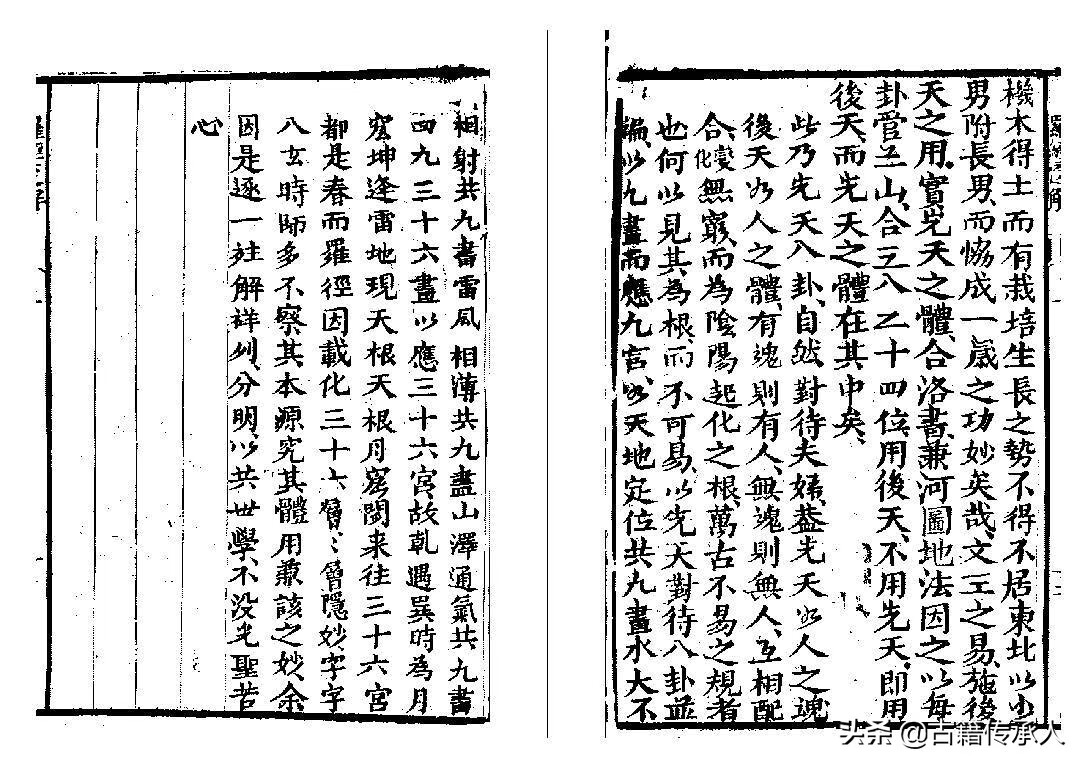 機木得土而有栽培生長之勢不得不居東北以少
男附長男、而恊成一歲之功妙矣哉、文王之易、施後
天之用、實先天之體、合洛書、兼河圖地法因之以每
卦管三山、合三八乙十四位、用後天、不用先天、即用
後天、而先天之體在其中矣、
此乃先天八卦、自然對待夫婦、葢先天如人之魂
後天如人之體、有魂則有人、無魂則無人、互相配
合、變化無窮、而為陰陽起化之根、萬古不易之規者
也何以見其為根、而不可易、以先天對待八卦並
以九畫而應九宮、如天地定位共九畫水火不
相射共九畫雷風相薄共九畫山澤通氣共九畫
四九三十六畫以應三十六宮、故乾遇巽時為月
窟坤逢雷地現天根天根月窟閒来往三十六宮
都是春而羅徑因載化三十六層、層隱妙字字
八玄時師多不察其本源究其體用兼該之妙、余
因是逐一註解詳列、分明、以共世學、不没先聖苦
心
头条 @古籍传承人